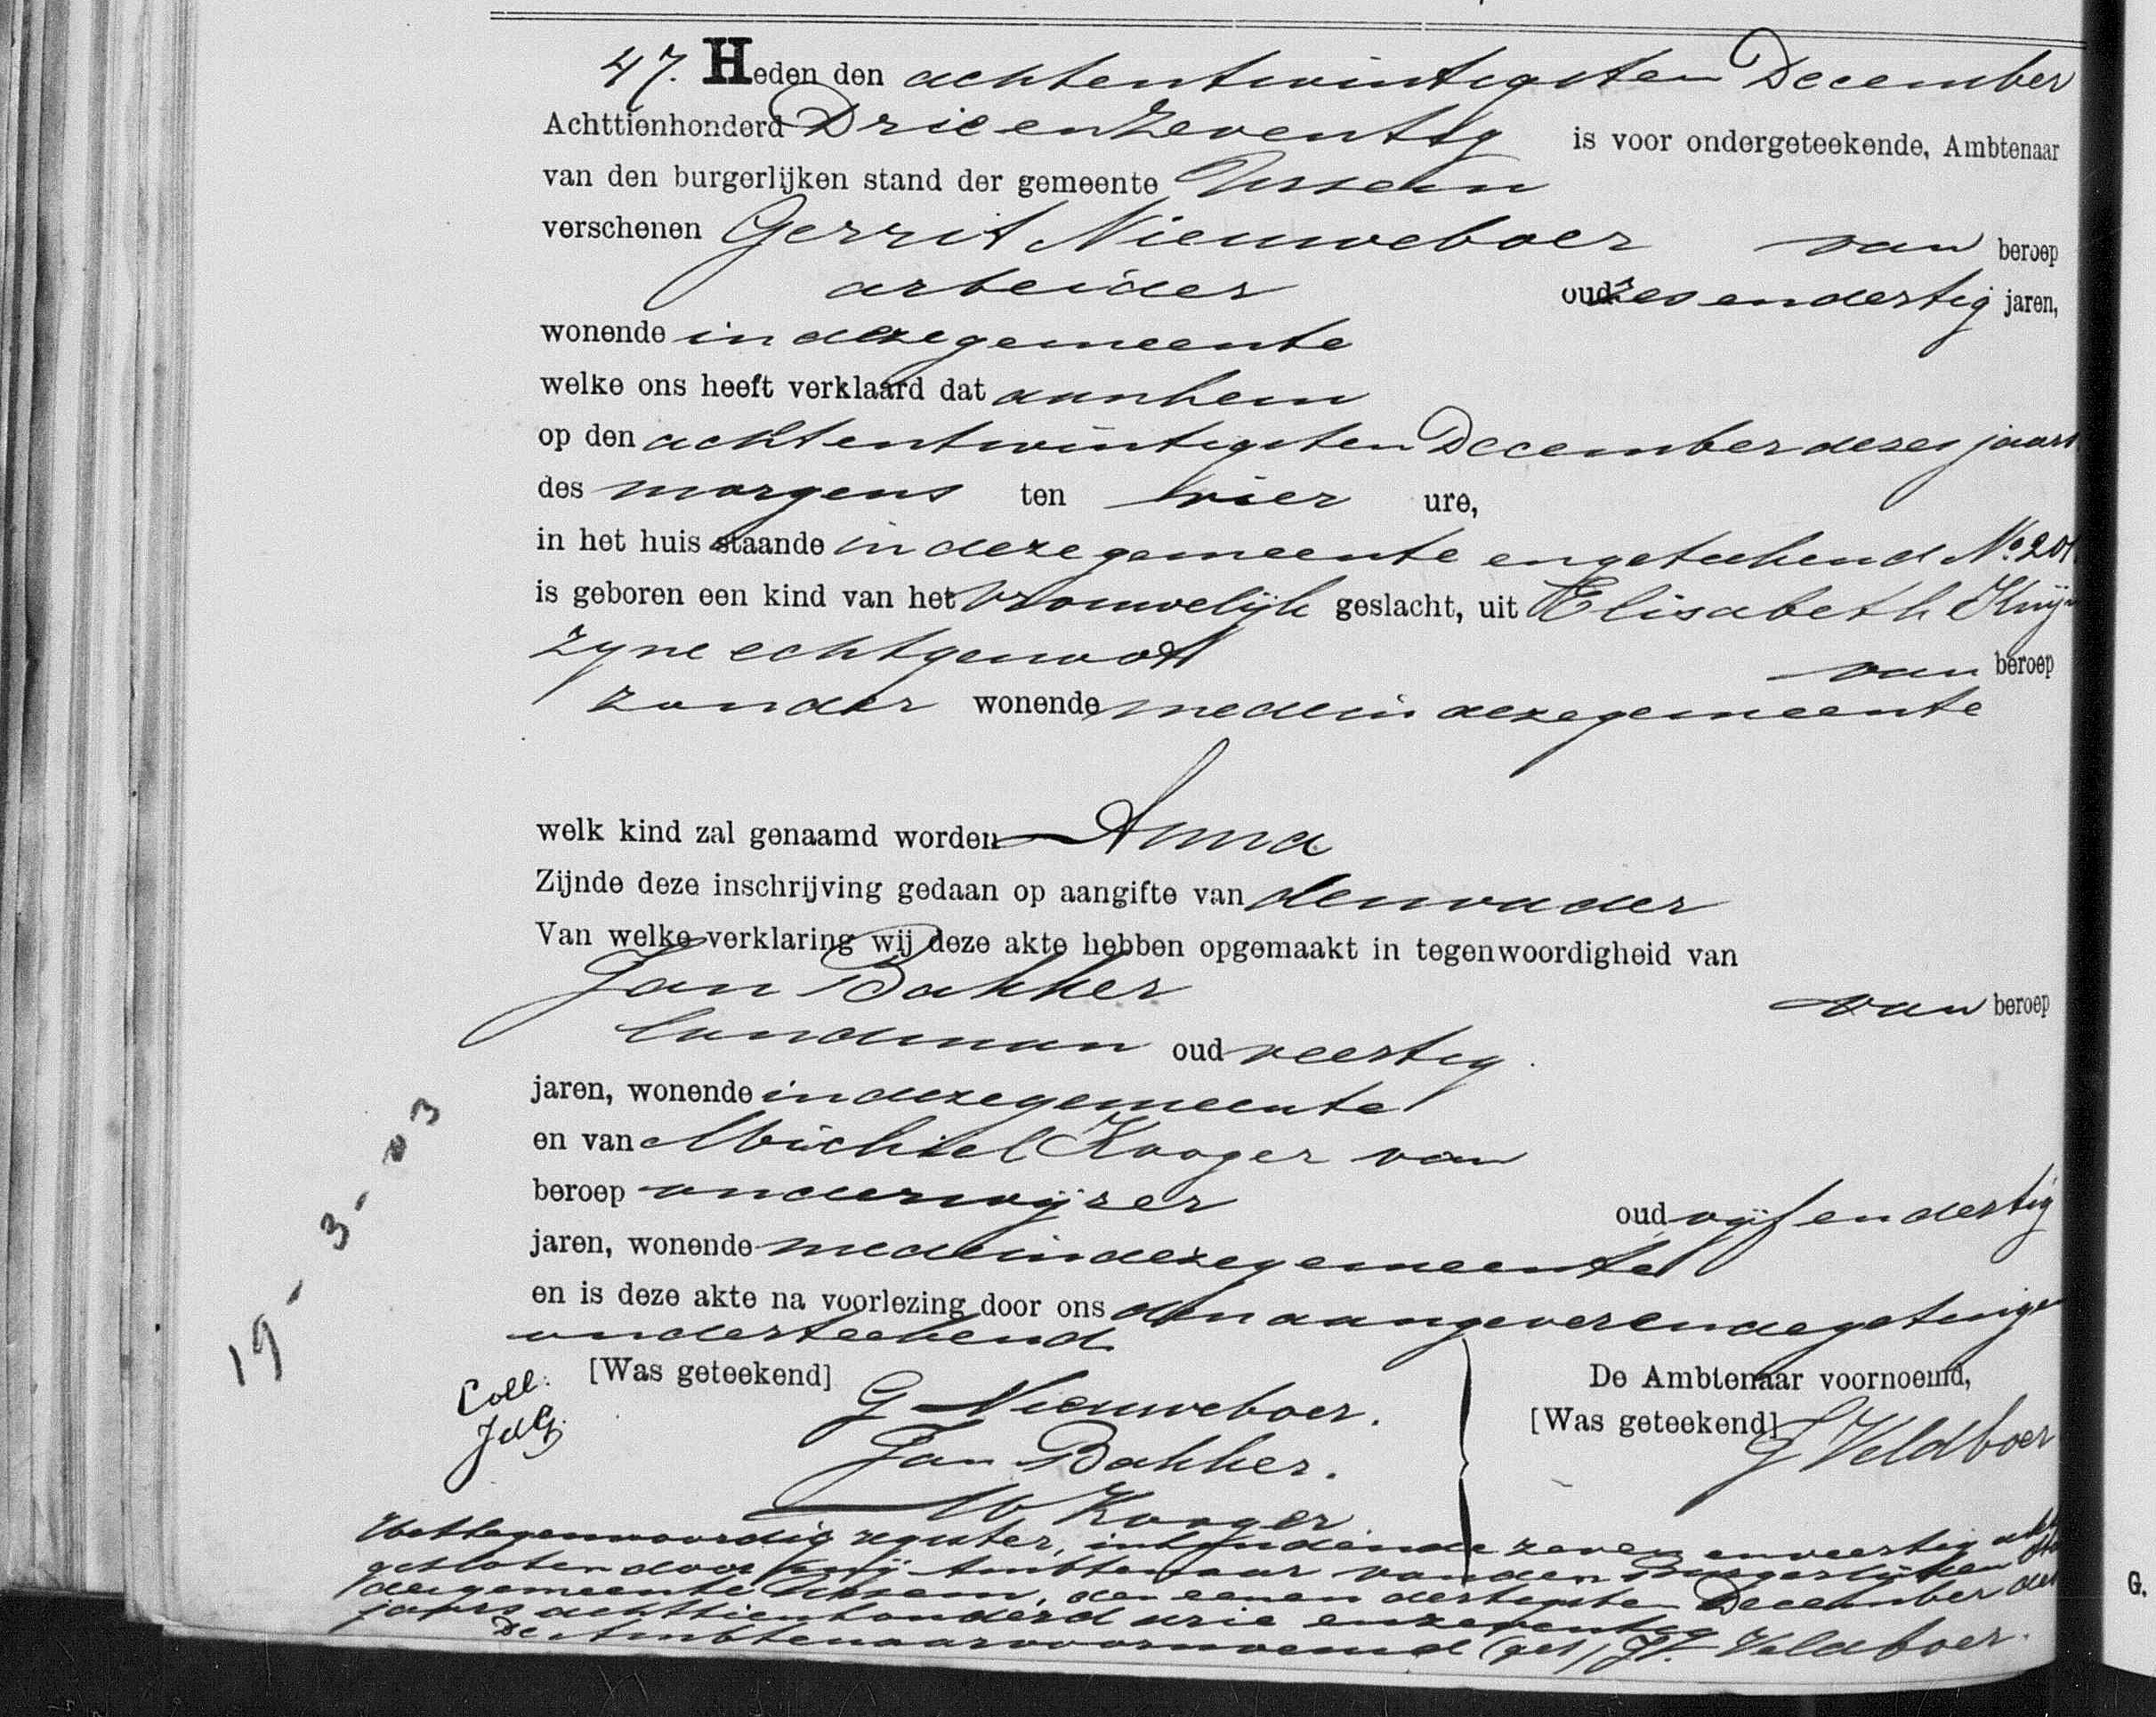 47. Heden den achtentwintigsten December
Achttienhonderd Drie en Zeventig is voor ondergeteekende, Ambtenaar
van den burgerlijken stand der gemeente Ursem
verschenen Gerrit Nieuweboer van beroep
arbeider oud zes en dertig jaren,
wonende in deze gemeente
welke ons heeft verklaard dat aan hem
op den achtentwintigsten December dezes jaars
des morgens ten vier ure,
in het huis staande in deze gemeente en geteekend No. 201
is geboren een kind van het vrouwelijk geslacht, uit Elisabeth
zyne echtgenoot van beroep
zonder wonende mede in deze gemeente
welk kind zal genaamd worden Anna
Zijnde deze inschrijving gedaan op aangifte van den vader
Van welke verklaring wij deze akte hebben opgemaakt in tegenwoordigheid van
Jan Bakker van beroep
landman oud veertig
jaren, wonende in deze gemeente
en van Michiel Kooger van
beroep onderwijzer oud vijf en dertig
jaren, wonende mede in deze gemeente
en is deze akte na voorlezing door ons den aangever en de getuigen
onderteekend
[Was geteekend] De Ambtenaar voornoemd,
Coll. G Nieuweboer. [Was geteekend] Veldboer
Jan Bakker.
M Kooger
19-3-03
Het tegenwoordig register, inhoudende zeven en veertig
gesloten door mij Ambtenaar van den Burgerlijken
der gemeente Ursem, den eenen dertigsten December des
jaars achttienhonderd drie en zeventig
De Ambtenaar voornoemd (get) Veldboer.
G.